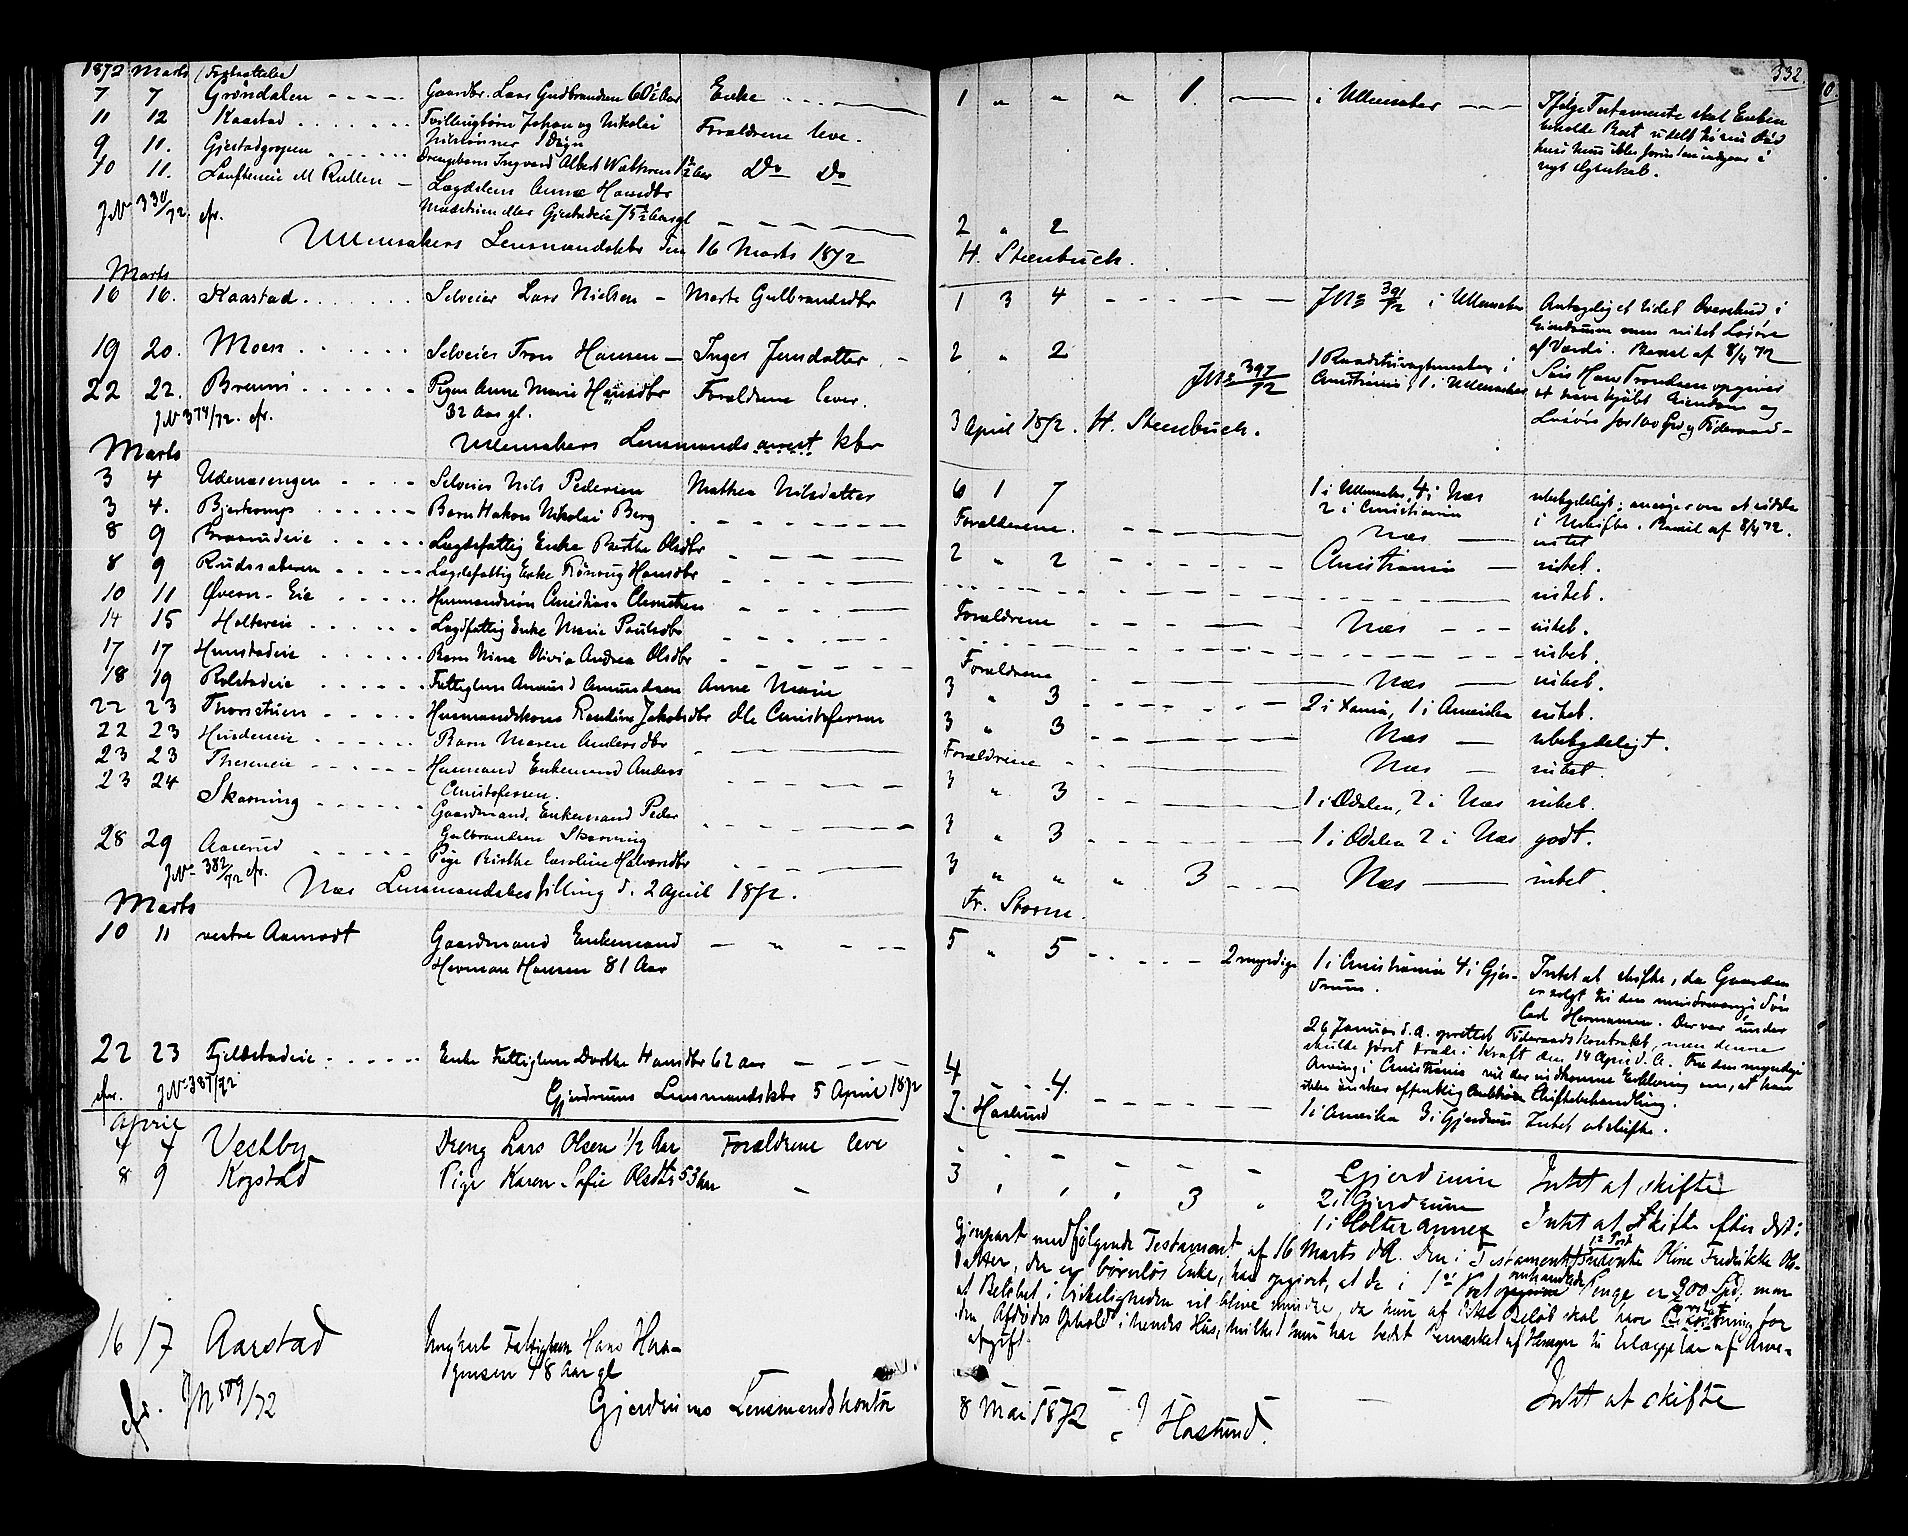 1872 Marts (Fortsættelse)
7 7 Grøndalen - - - - Gaardbr. Lars Gudbrandsen 60½ Aar Enke - - - -
11 12 Kaastad . . . . . . . Tvillingbørn Johan og Nikolai
9 11. Gjestadgropen - - - - - 1 Døgn Forældrene leve.
10 11. M Rullen - Drengebarn Ingvard Albert Do Do
Lægdslem Anne Hansdbr
J№ 330/72. cfr. Gjestadeie 75½ Aar gl
Ullensakers Lensmandskbr den 16 Marts 1872
Marts
16 16. Kaastad . . . . . . . Selveier Lars Nielsen - Marte Gulbrandsdbr
19 20. Moen . . . . . . Selveier Tron Hansen - Inger Jensdatter -
22 22. Brenni . . . . . . Pigen Anne Marie Hansdbr Forældrene lever.
32 Aar gl.
J№ 374/72. cfr.
Ullensakers Lensmands arrest kbr
Marts
3 4 Udenesengen - - - - Selveier Nils Pedersen Mathea Nilsdatter
3 4. Bjerkemyr - - - - - Barn Hakon Nikolai Berg
8 9 - - - - - Lægdsfattig Enke Berthe Olsdbr
8 9 Rudssæteren - - - - - Lægdsfattig Enke Rønnug Hansdbr
10 11 Øveren - Eie - - - - - Husmandssøn Christian Christensen
14 15 Holtereie . . . . . . Lægdfattig Enke Marie Paulsdbr
17 17 Hunstadeie . . . . . . Barn Nina Olivia Andrea Olsdbr
18 19 Rolstadeie . . . . . . Fattiglem Amund Amundsen Anne Marie
22 23 Thorsstuen - - - - - Husmandskone Randine Jakobsdbr dle Christofersen
22 23 - - - - - Barn Maren Andersdbr
23 23 Theseneie - - - - - Husmand Enkemand Anders
Christofersen.
23 24 Skarning - - - - - - Gaardmand, Enkemand Peder
Gulbrandsen Skarning
28 29 Aaserud - - - - - Pige Birthe Caroline Halvorsdbr
J№ 382/72 cfr.
Næs Lensmandsbestilling d. 2 April 1872.
Marts
10 11 vestre Aamodt Gaardmand Enkemand - " - -
Herman Hansen 81 Aar
22 23 Fjeldstadeie . - - - - - Enke Fattiglem Dorthe Hansdbr 62 Aar - - - -
cfr. J№ 387/72
Gjerdrums Lensmandskbr 5 April 1872
April
4 4 Vestby Dreng Lars Olsen 1/2 Aar Forældrene leve
8 9 Kogstad Pige Karen Sofie Olsdtr 53 Aar -
16 17 Aarstad Ungkarl Fattiglem Hans Han-
sen 48 Aar gl
cfr. J№ 509/72
Gjerdrums Lensmandskontor
532.
1 " " " 1. - i Ullensaker - - Ifølge Testamente skal Enken
beholde Boet uskift til sin Død
hvis hun ikke forinden indgaar i
nyt Ægteskab.
2 " 2
H. Steenbuch.
1 3 4 - - - - - J№ 391/72 i Ullensaker Antagelig et lidet Overskud i
Eiendommen men intet Løsøre
af Værdi. Besvel af 8/4 72
2 " 2 J№ 397/72 1 i
Christiania, 1 i Ullensaker Søn Hans Tronsen opgives
at have kjøbt Eiendom og
Løsøre for 100 Spd og Føderaad -
3 April 1872. H. Steenbuch.
6 1 7 1 i Ullensaker, 4 i Næs
2 i Christiania ubetydeligt;
i Uskifte. Besvel af 8/4 72.
Forældrene. - - - - Næs - intet
2 " 2 - - - - - - Christiania - intet.
- - - - - - - - intet.
Forældrene - - - - - Næs - - - intet.
- - - - - - - - intet.
Forældrene - - - - Næs - intet.
3 " 3 - - - - - - 2 i Xania, 1 i Amerika intet.
3 " 3 - - - - - Næs - ubetydeligt.
Forældrene - - - - Næs - intet.
3 " 3 - - - - - 1 i Odalen, 2 i Næs intet.
3 " 3 - - - - - 1 i Odalen 2 i Næs godt.
3 " " " 3 - - - Næs - intet.
Fr. Storm.
5 " 5 - - - - - 2 myndige 1 i Christiania 4 i Gjer-
drum. Intet at skifte, da Gaarden
er solgt til den Søn
Carl Hermansen. Der var under
26 Januar d. A. oprettet Føderaadskontrakt, men denne
skulde først træde i Kraft den 14 April d. A. Fra den myndige
Arving i Christiania vil der indkomme Erklæring om, at han
ikke ønsker offentlig Skiftebehandling.
4 " 4. - - - - - - 1 i Amerika 3 i Gjerdrum Intet at skifte.
J. Haslund
- - - - - Gjerdrum Intet at skifte
3 , , , 3 " 2 i Gjerdrum
1 i Holter Annex Intet at Skifte efter det i
Gjenpart medfølgende Testament af 16 Marts d A. Den i Testamentets 1ste Post Oline Fredrikke Ols-
datter, der er barnløs Enke, har opgivet, at de i 1ste Post omhandlede Penge er 200 Spd, men
at Beløbet i Virkeligheden vil blive mindre, da hun af dette Beløb skal have Erstatning for
den Afdødes Ophold i hendes Hus, hvilket hun har bedt bemærket af Hensyn til Erlæggelse af Arve-
afgift.
Intet at skifte
8 Mai 1872 J. Haslund.